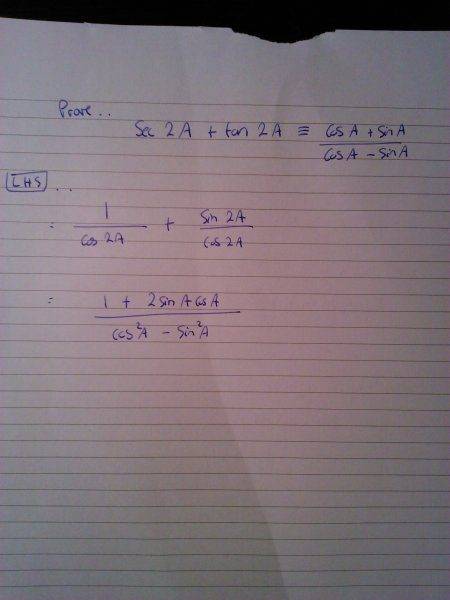 Prove..
Sec 2A + tan 2A ≡ (Cos A + Sin A) / (Cos A - Sin A)
LHS ..
= 1 / Cos 2A + Sin 2A / Cos 2A
= (1 + 2 Sin A Cos A) / (Cos²A - Sin²A)